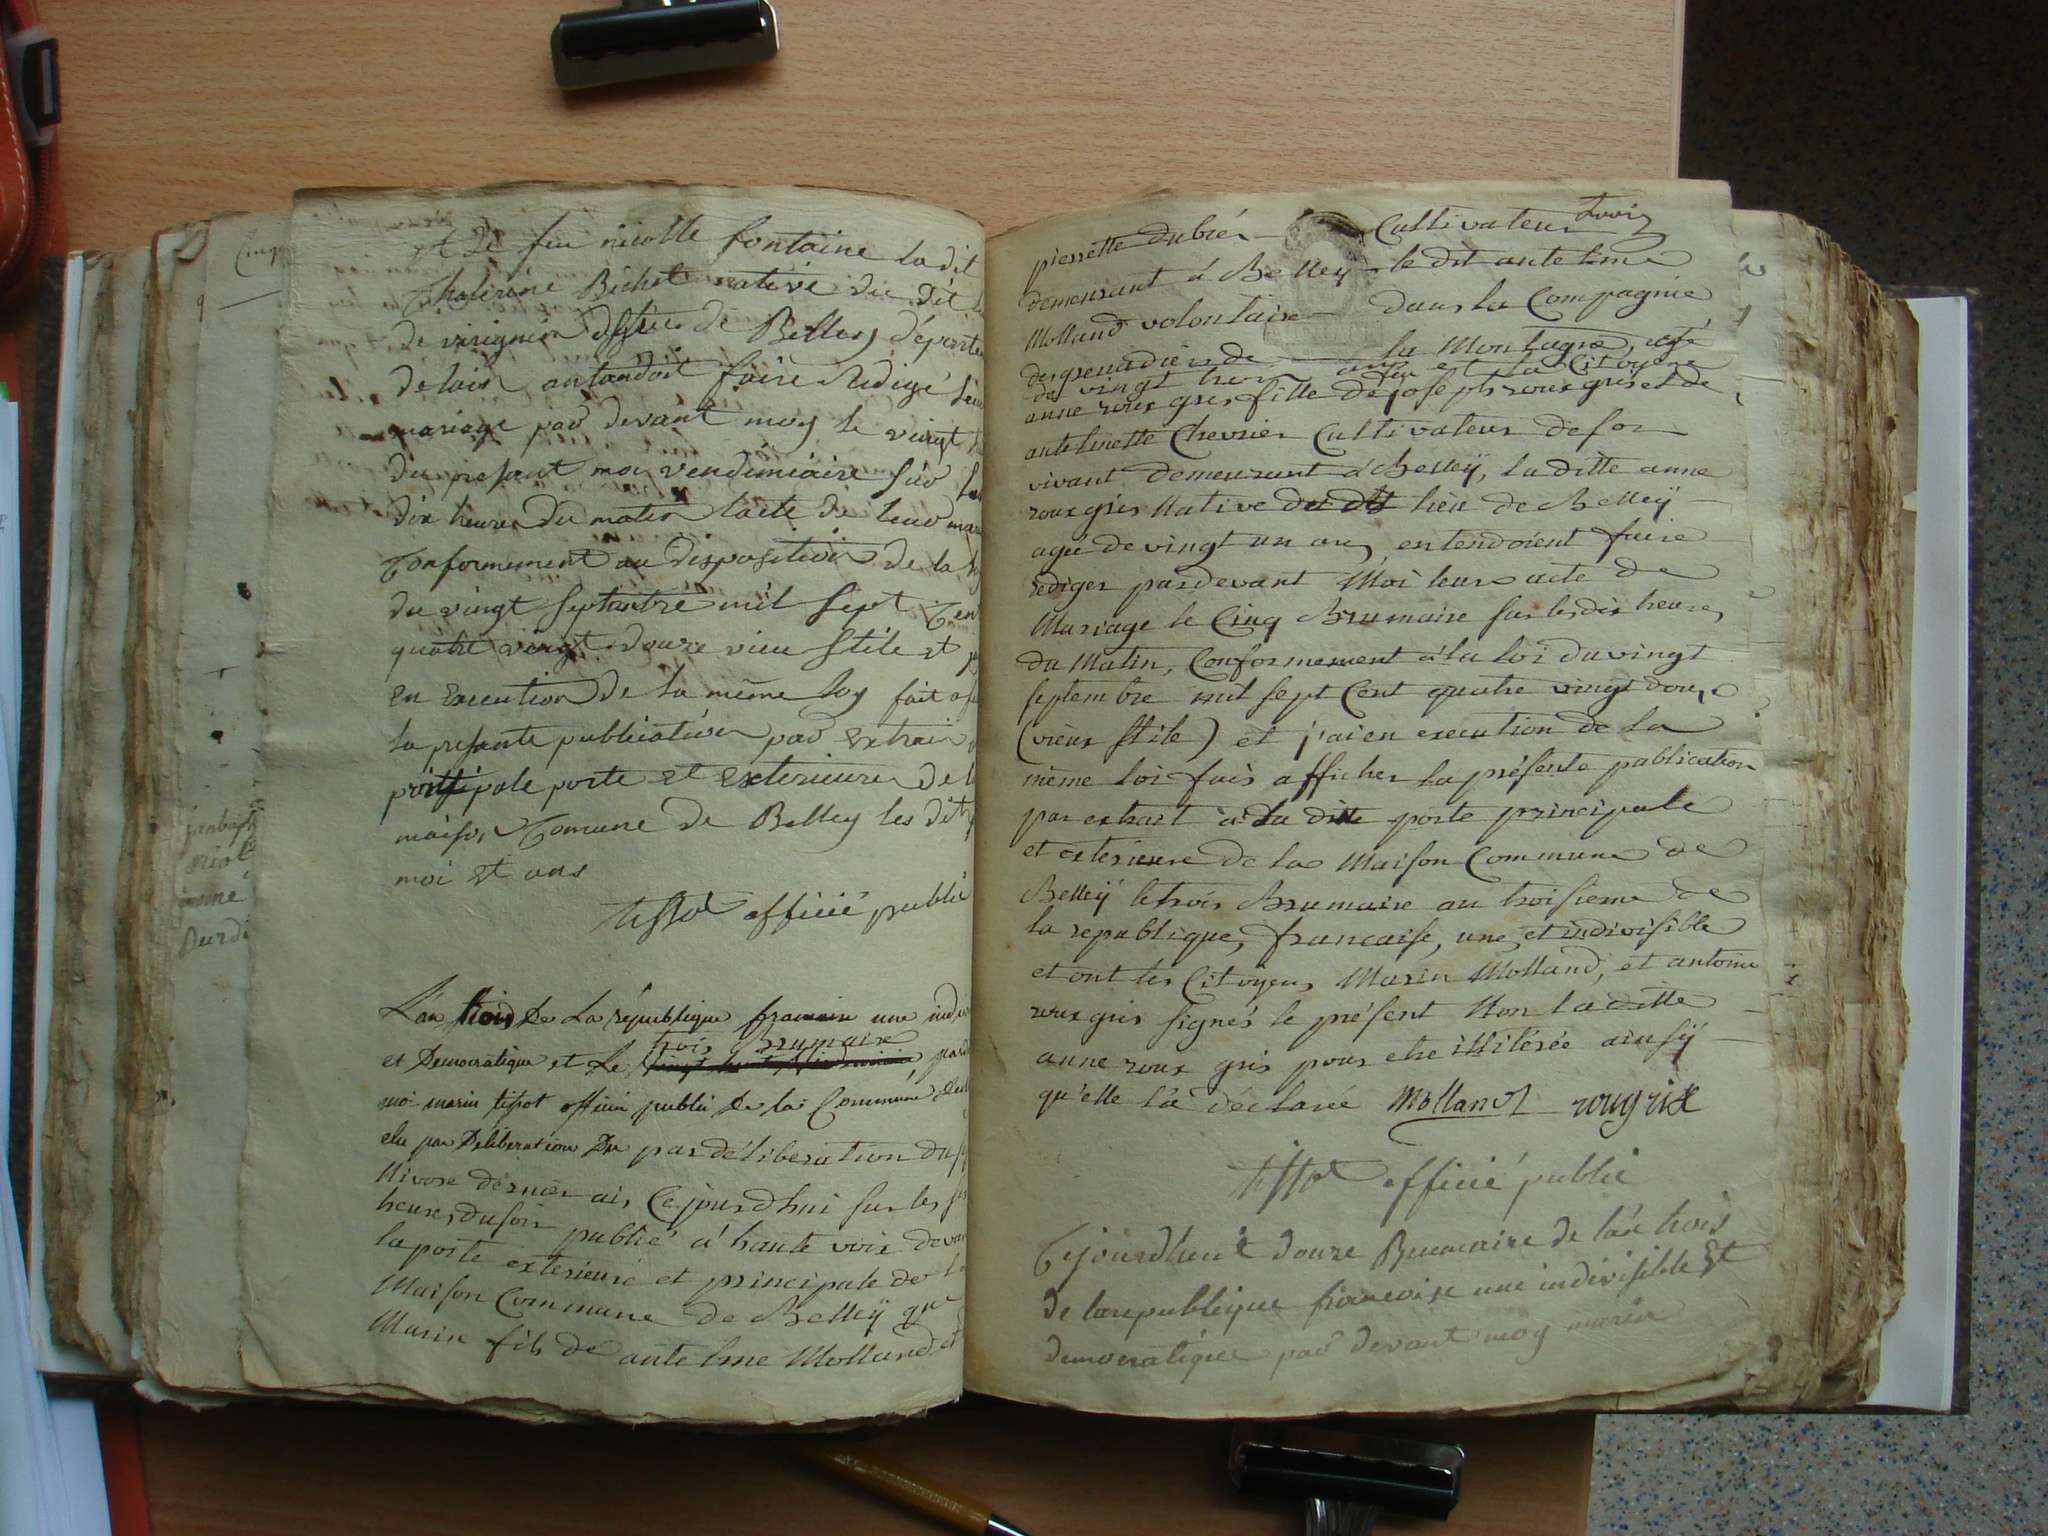 et de feu nicolle fontaine la dit
Chaterine Bichet native du dit
de virignin district de Belley départe
delain antandoit faire Redigé
mariage par devant moy le vingt
du present moi vendemiaire sur
dix heures du matin lacte de leur mar
Conformement au disposition de la
du vingt Septambre mil Sept Cen
quatre vingt douze vieu Stile et
en Execution de la même loy fait
la presante publication par Extrait
pale porte et Exterieure de l
maison Comune de Belley les dit
moi et ans
tissot officié publi
janba
Durdi
L'an trois de La république francaise une indi
trois Brumaire
et Democratique et Le par
moi marin tissot officié publi de la Commune
elu par Deliberation Du par déliberation du
Nivose dérnier ai, Cejourdhui sur les
heures du soir publié à haute voix devan
la porte exterieure et principale de
Maison Commune de Belleÿ que
Marin fils de antelme Molland et
trois
pierrette dubié Cultivateur
demeurant à Belley le dit antelme
Molland volontaire dans la Compagnie
des grenadiers de la Montagne, agé
de vingt ans et la Citoyenne
anne roux gris fille de joseph roux gris et de
antelmette Chevrier Cultivateur de son
vivant demeurant à Belleÿ, la ditte anne
roux gris Native du dit lieu de Belleÿ
agée de vingt un ans, entendoient faire
rediger pardevant Moi leur acte de
Mariage le Cinq Brumaire sur les dix heures
du Matin, Conformement à la loi du vingt
septembre mil sept Cent quatre vingt douze
(vieux Stile) et j'ai en execution de la
même loi fais afficher la présente publication
par extrait à la ditte porte principale
et exterieure de la Maison Commune de
Belleÿ le trois Brumaire an troisieme de
la republique, francaise, une, et indivisible
et ont les Citoyens Marin Molland, et antoine
roux gris signés le présent Non la ditte
anne roux gris pour etre illiterée ainsÿ
qu'elle la declaré Molland rougrix
tissot officié publié
Cejourdhui douze Brumaire de lan trois
de la republique francoise une indivisible Et
democratiqee par devant moy marin